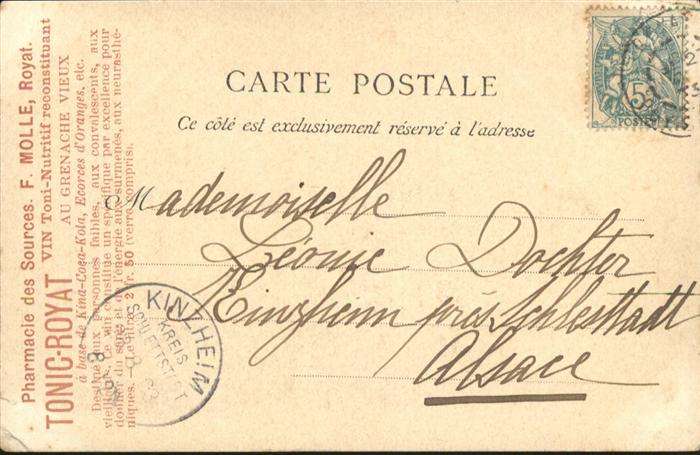 CARTE POSTALE
Ce côté est exclusivement réservé à l'adresse
Mademoiselle
Léonie Dochter
Kinzheim près Schlestadt
Alsace
Pharmacie des Sources. F. MOLLE, Royat.
TONIC-ROYAT VIN Toni-Nutritif reconstituant
AU GRENACHE VIEUX
à base de Kina-Coca-Kola, Ecorces d'Oranges, etc.
Destiné aux personnes faibles, aux convalescents, aux
vieillards. Ce vin constitue un spécifique par excellence pour
donner du sang et de l'énergie aux surmenés, aux neurasthé-
niques. Le litre 2 fr. 50 (verre compris).
KINZHEIM
KREIS
SCHLETTSTADT
5
POSTES